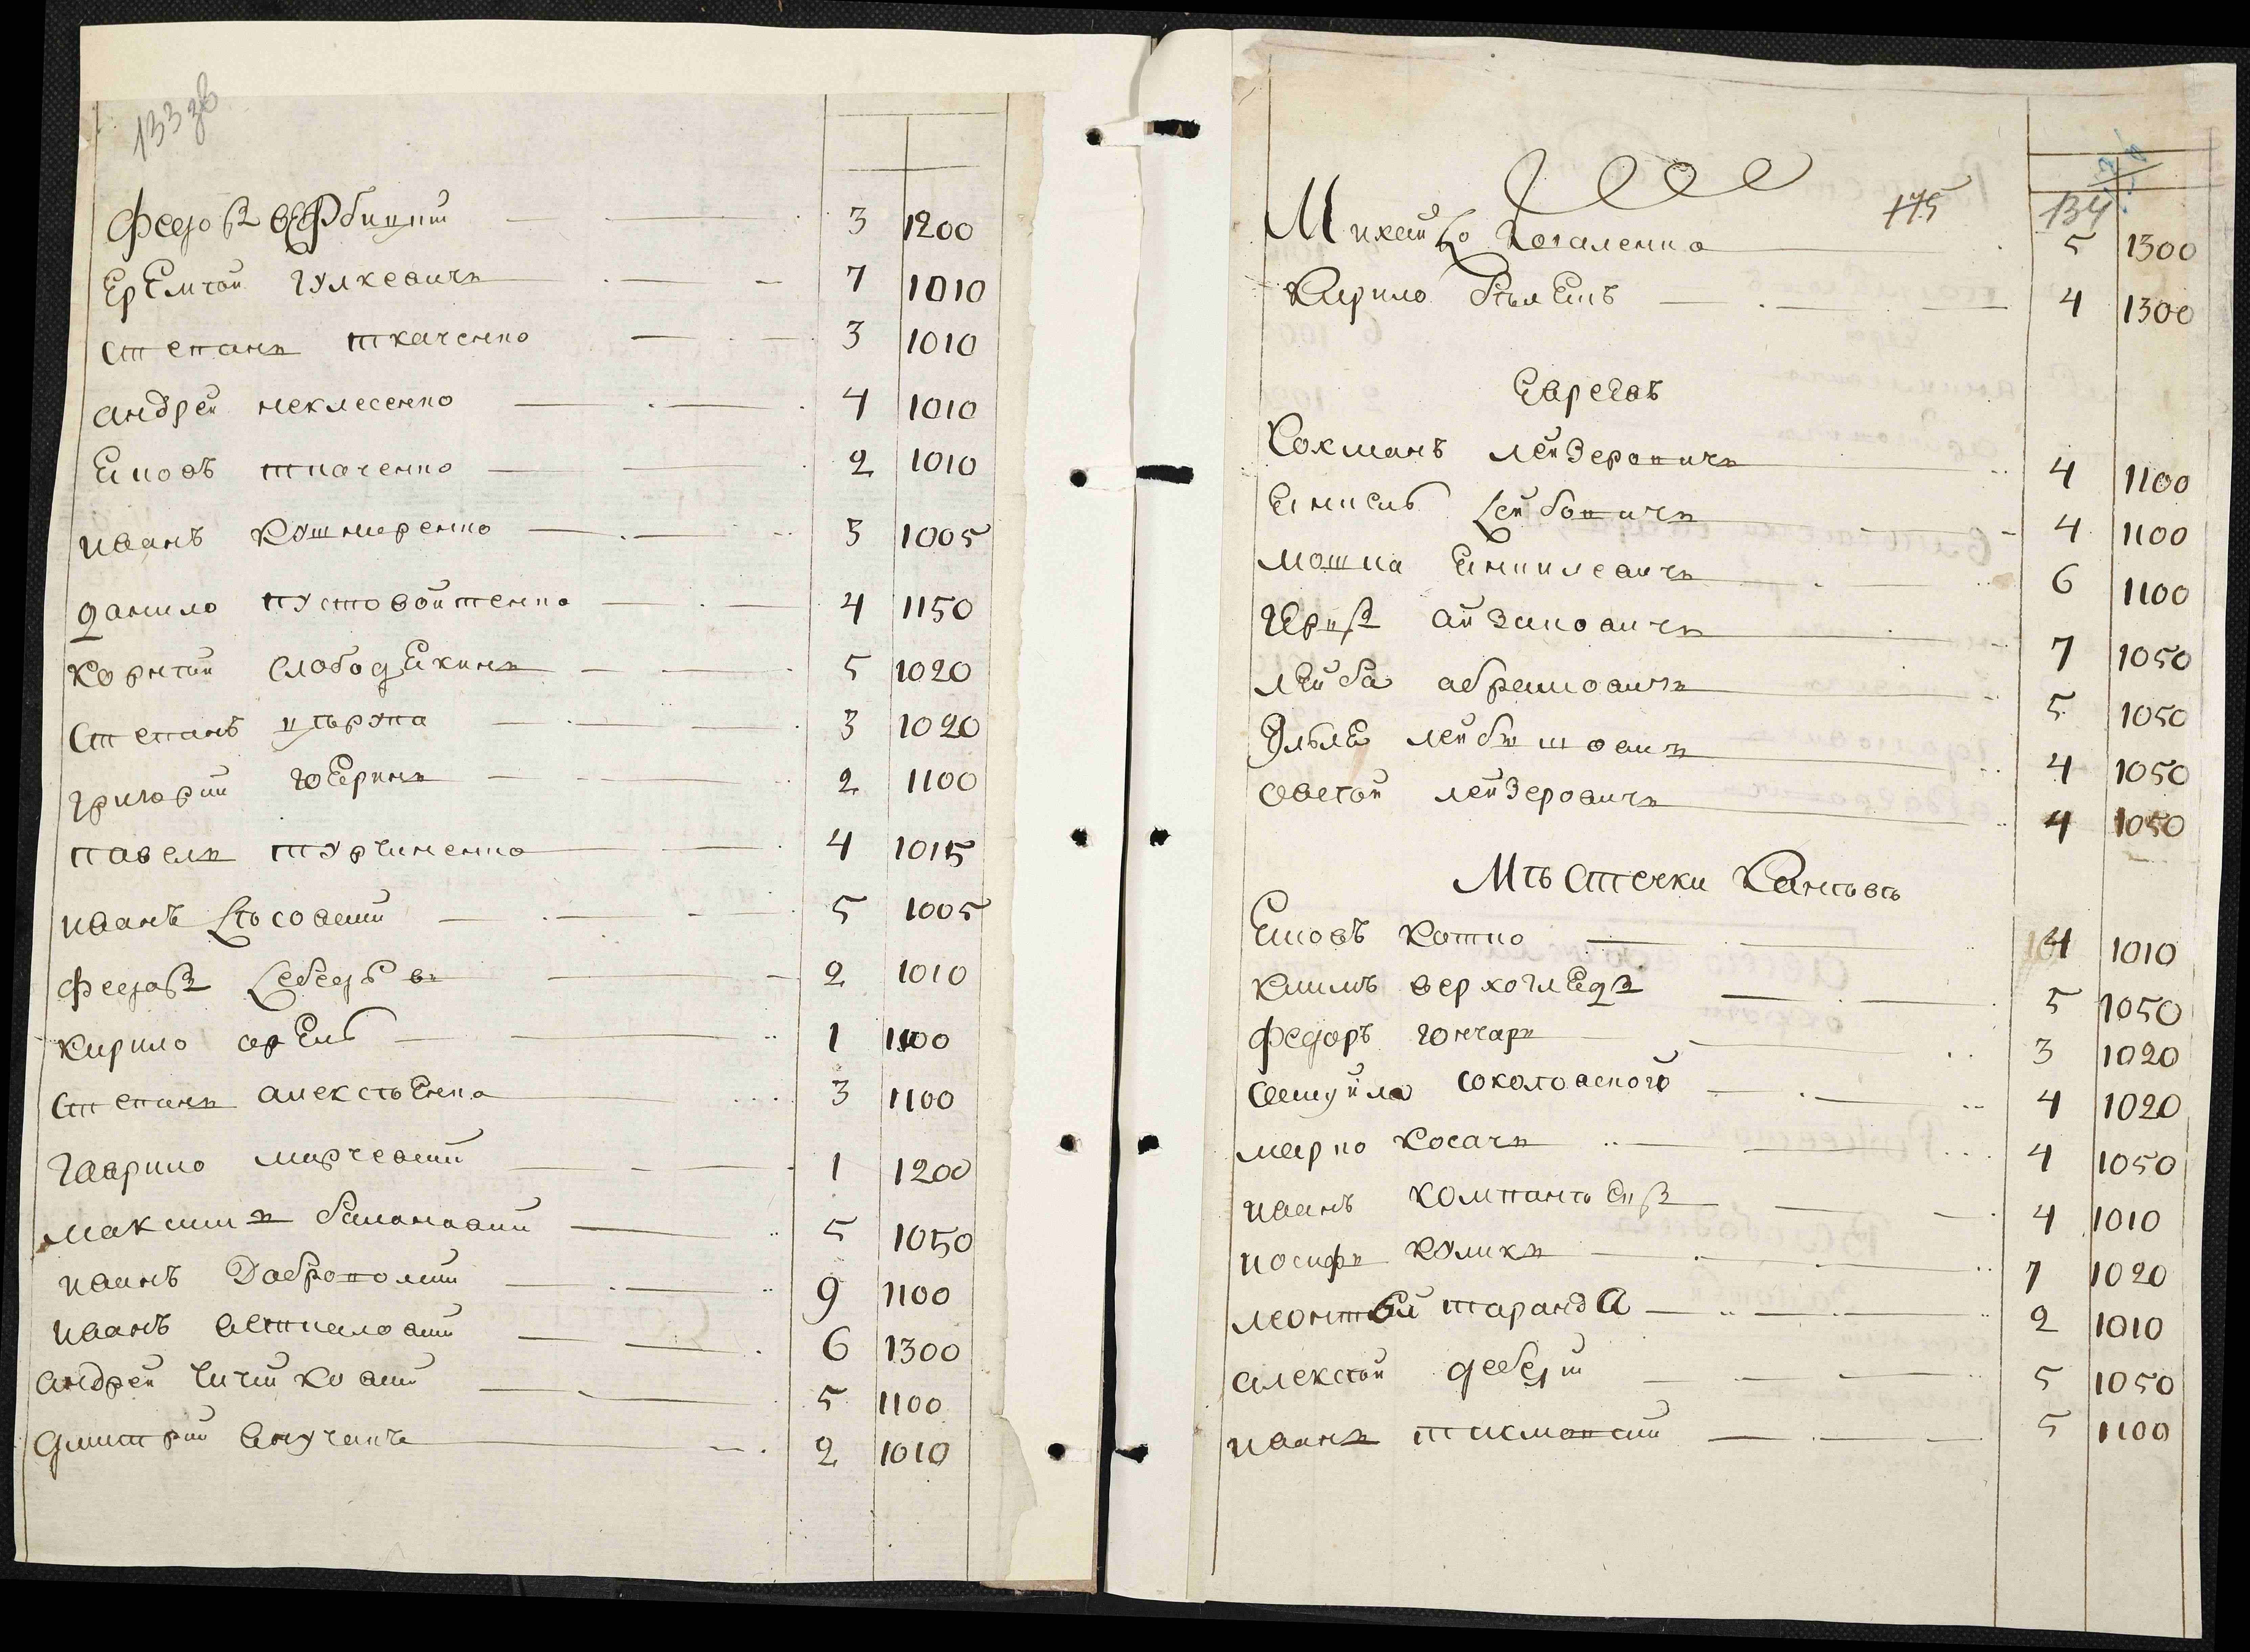 133 зв
Федоръ Вербицкий 3 1200
Еремѣй гулкевичъ 7 1010
Степанъ ткаченко 3 1010
андрей неклесенко 4 1010
Яковъ ткаченко 2 1010
иванъ Кушниренко 3 1005
данило пустовойтенко 4 1150
Корнѣй слободяникъ 5 1020
Степанъ цюрупа 3 1020
григорий 2 1100
павелъ турчиненко 4 1015
иванъ Лѣсовский 5 1005
Федоръ Лебедевъ 2 1010
кирило орелъ 1 1100
Степанъ алексѣенко 3 1100
гаврило марчевский 1 1200
максимъ балановский 5 1050
иванъ Доброполский 9 1100
иванъ 6 1300
андрей Чичиковский 5 1100
дмитрий Внучекъ 2 1010
175 134
Михайло Коваленко 5 1300
Кирило бѣлецъ 4 1300
Евреевъ
Кохманъ лейзеровичъ 4 1100
Янкель Лейбовичъ 4 1100
мошка Янкилевичъ 6 1100
Герцъ айзиковичъ 7 1050
лейба абрамовичъ 5 1050
лейбишовичъ 4 1050
овсѣй лейзеровичъ 4 1050
Мѣстечки Кантовѣ
Яковъ Котко 4 1010
климъ верхоглядъ 5 1050
Федоръ гончаръ 3 1020
самуила соколовского 4 1020
марко Косачъ 4 1050
иванъ компанѣецъ 4 1010
иосифъ куликъ 7 1020
леонтѣй таранда 2 1010
алексѣй 5 1050
иванъ 5 1100